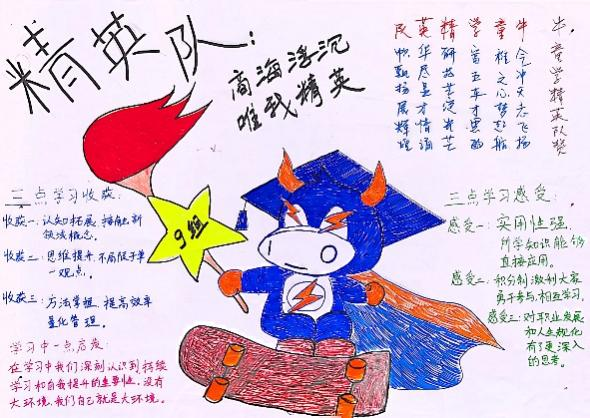 精英队:
商海浮沉
唯我精英
牛童学精英队赞
牛气冲天志飞扬
童稚之心梦起航
学富五车才思
精研技艺光芒
英华尽显才情涌
队帜飘扬展辉煌
9组
三点学习收获:
收获一:认知拓展,接触新
领域概念。
收获二:思维提升,不局限于单
一观点。
收获三:方法掌握,提高效率
量化管理。
学习中一点启发:
在学习中我们深刻认识到持续
学习和自我提升的重要性,没有
大环境,我们自己就是大环境。
三点学习感受:
感受一:实用性强
所学知识能够
直接应用。
感受二:积分制激励大家
勇于参与,相互学习。
感受三:对职业发展
和人生规化
有了更深入
的思考。